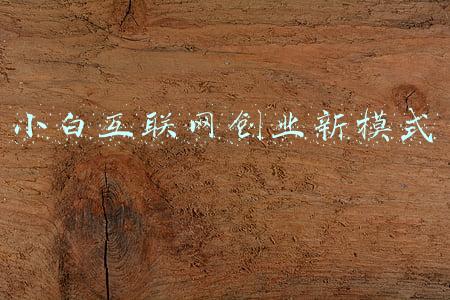 小白互联网创业新模式